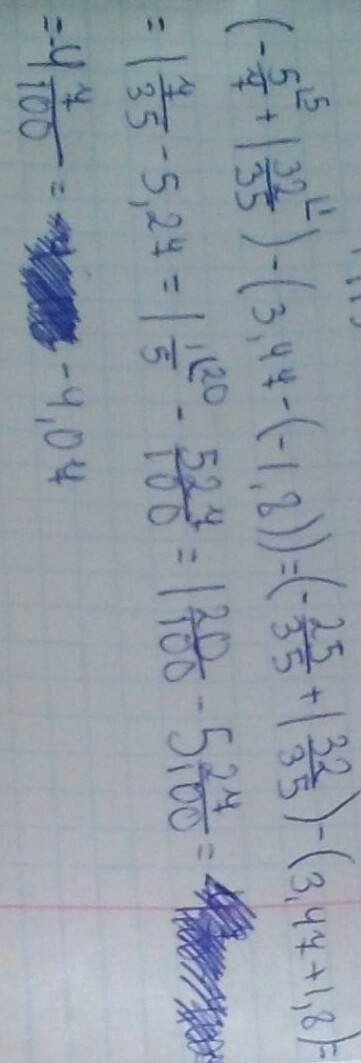 (-5/7⌊5 + 1 32/35⌊1) - (3,44 - (-1,8)) = (-25/35 + 1 32/35) - (3,44 + 1,8) =
= 1 7/35 - 5,24 = 1 1/5⌊20 - 5 24/100 = 1 20/100 - 5 24/100 =
= -4 4/100 = -4,04